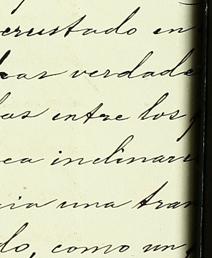 crustado en
las verdade
las entre los
ca inclinar
ia una tran
do, como un